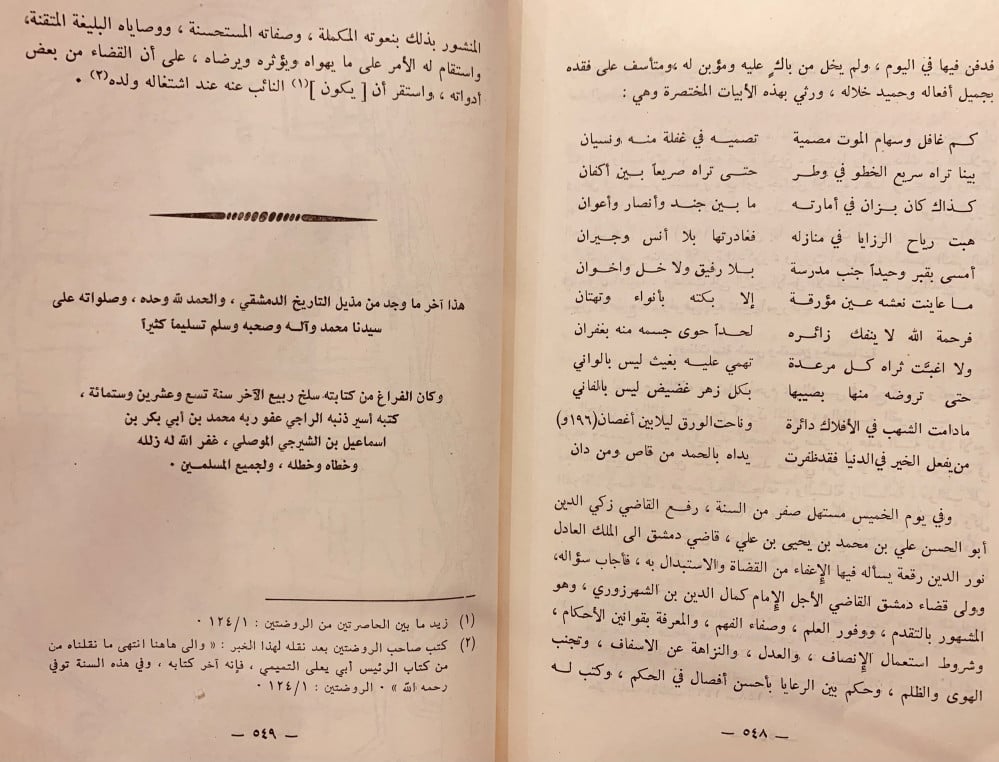 فدفن فيها في اليوم ، ولم يخل من باكٍ عليه ومؤبن له ،ومتأسف على فقده
بجميل أفعاله وحميد خلاله ، ورثي بهذه الأبيات المختصرة وهي :
كم غافل وسهام الموت مصمية تصميه في غفلة منه ونسيان
بينا تراه سريع الخطو في وطر حتى تراه صريعاً بين أكفان
كذاك كان بزان في أمارته ما بين جند وأنصار وأعوان
هبت رياح الرزايا في منازله فغادرتها بلا أنس وجيران
أمسى بقبر وحيداً جنب مدرسة بلا رفيق ولا خل واخوان
ما عاينت نعشه عين مؤرقة إلا بكته بأنواء وتهتان
فرحمة الله لا ينفك زائره لحداً حوى جسمه منه بغفران
ولا اغبَّت ثراه كل مرعدة تهمي عليه بغيث ليس بالواني
حتى تروضه منها بصيبها بكل زهر غضيض ليس بالفاني
مادامت الشهب في الأفلاك دائرة وناحت الورق ليلابين أغصان(١٩٦و)
من يفعل الخير في الدنيا فقدظفرت يداه بالحمد من قاص ومن دان
وفي يوم الخميس مستهل صفر من السنة ، رفع القاضي زكي الدين
أبو الحسن علي بن محمد بن يحيى بن علي ، قاضي دمشق الى الملك العادل
نور الدين رقعة يسأله فيها الإعفاء من القضاة والاستبدال به ، فأجاب سؤاله،
وولى قضاء دمشق القاضي الأجل الإمام كمال الدين بن الشهرزوري ، وهو
المشهور بالتقدم ، ووفور العلم ، وصفاء الفهم ، والمعرفة بقوانين الأحكام ،
وشروط استعمال الإنصاف ، والعدل ، والنزاهة عن الاسفاف ، وتجنب
الهوى والظلم ، وحكم بين الرعايا بأحسن أفصال في الحكم ، وكتب له
— ٥٤٨ —
المنشور بذلك بنعوته المكملة ، وصفاته المستحسنة ، ووصاياه البليغة المتقنة،
واستقام له الأمر على ما يهواه ويؤثره ويرضاه ، على أن القضاء من بعض
أدواته ، واستقر أن [ يكون ](١) النائب عنه عند اشتغاله ولده(٢) ٠
هذا آخر ما وجد من مذيل التاريخ الدمشقي ، والحمد لله وحده ، وصلواته على
سيدنا محمد وآله وصحبه وسلم تسليماً كثيراً
وكان الفراغ من كتابته سلخ ربيع الآخر سنة تسع وعشرين وستمائة ،
كتبه أسير ذنبه الراجي عفو ربه محمد بن أبي بكر بن
اسماعيل بن الشيرجي الموصلي ، غفر الله له زلله
وخطاه وخطله ، ولجميع المسلمين ٠
(١) زيد ما بين الحاصرتين من الروضتين : ١٢٤/١ ٠
(٢) كتب صاحب الروضتين بعد نقله لهذا الخبر : « والى هاهنا انتهى ما نقلناه من
من كتاب الرئيس أبي يعلى التميمي ، فإنه آخر كتابه ، وفي هذه السنة توفي
رحمه الله » ٠ الروضتين : ١٢٤/١ ٠
— ٥٤٩ —